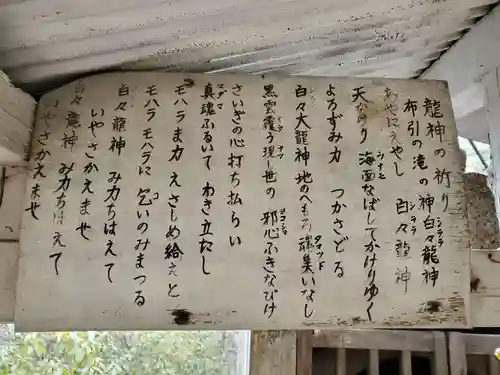 龍神の祈り
布引の滝の神白々龍神
あやにえやし 白々龍神
天なり 海面なばしてかけりゆく
よろずみ力 つかさどる
白々大龍神 地のへもろ魂集いなし
黒雲覆う現し世の 邪心ふきなびけ
さいぎの心打ち払らい
真魂ふるいて わき立たし
モハラ ま力 えさしめ給えと
モハラ モハラに 乞いのみまつる
白々龍神 み力ちはえて
いやさかえませ
白々龍神 み力ちはえて
いやさかえませ